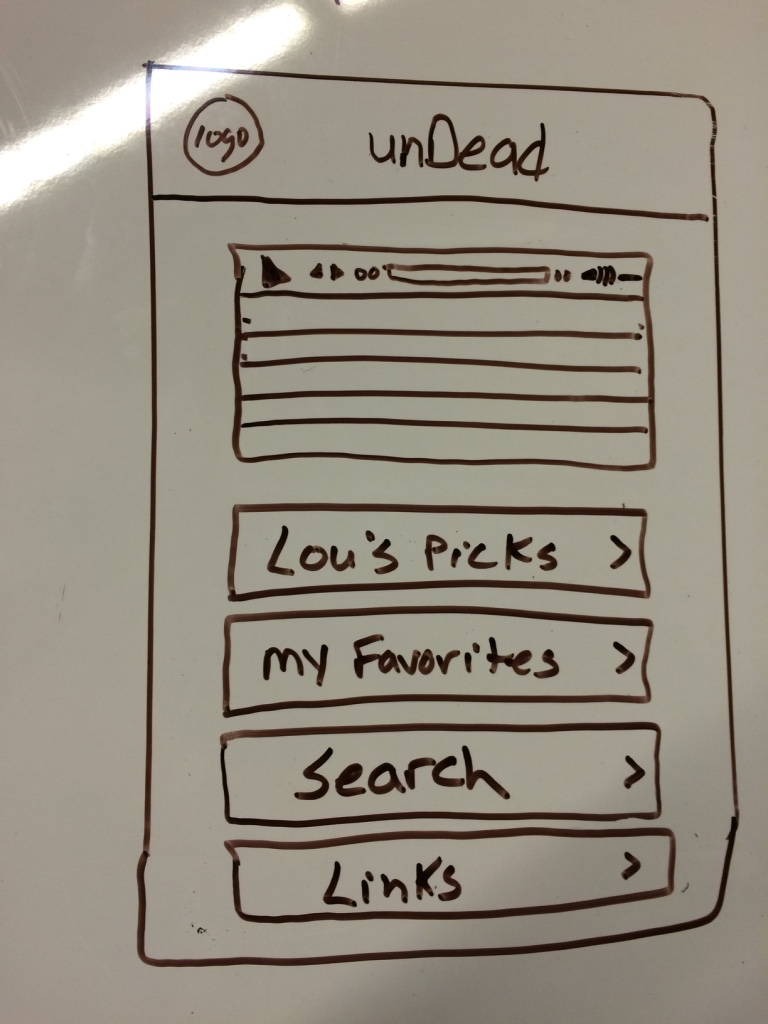 logo
unDead
00 00
Lou's Picks >
my Favorites >
Search >
Links >